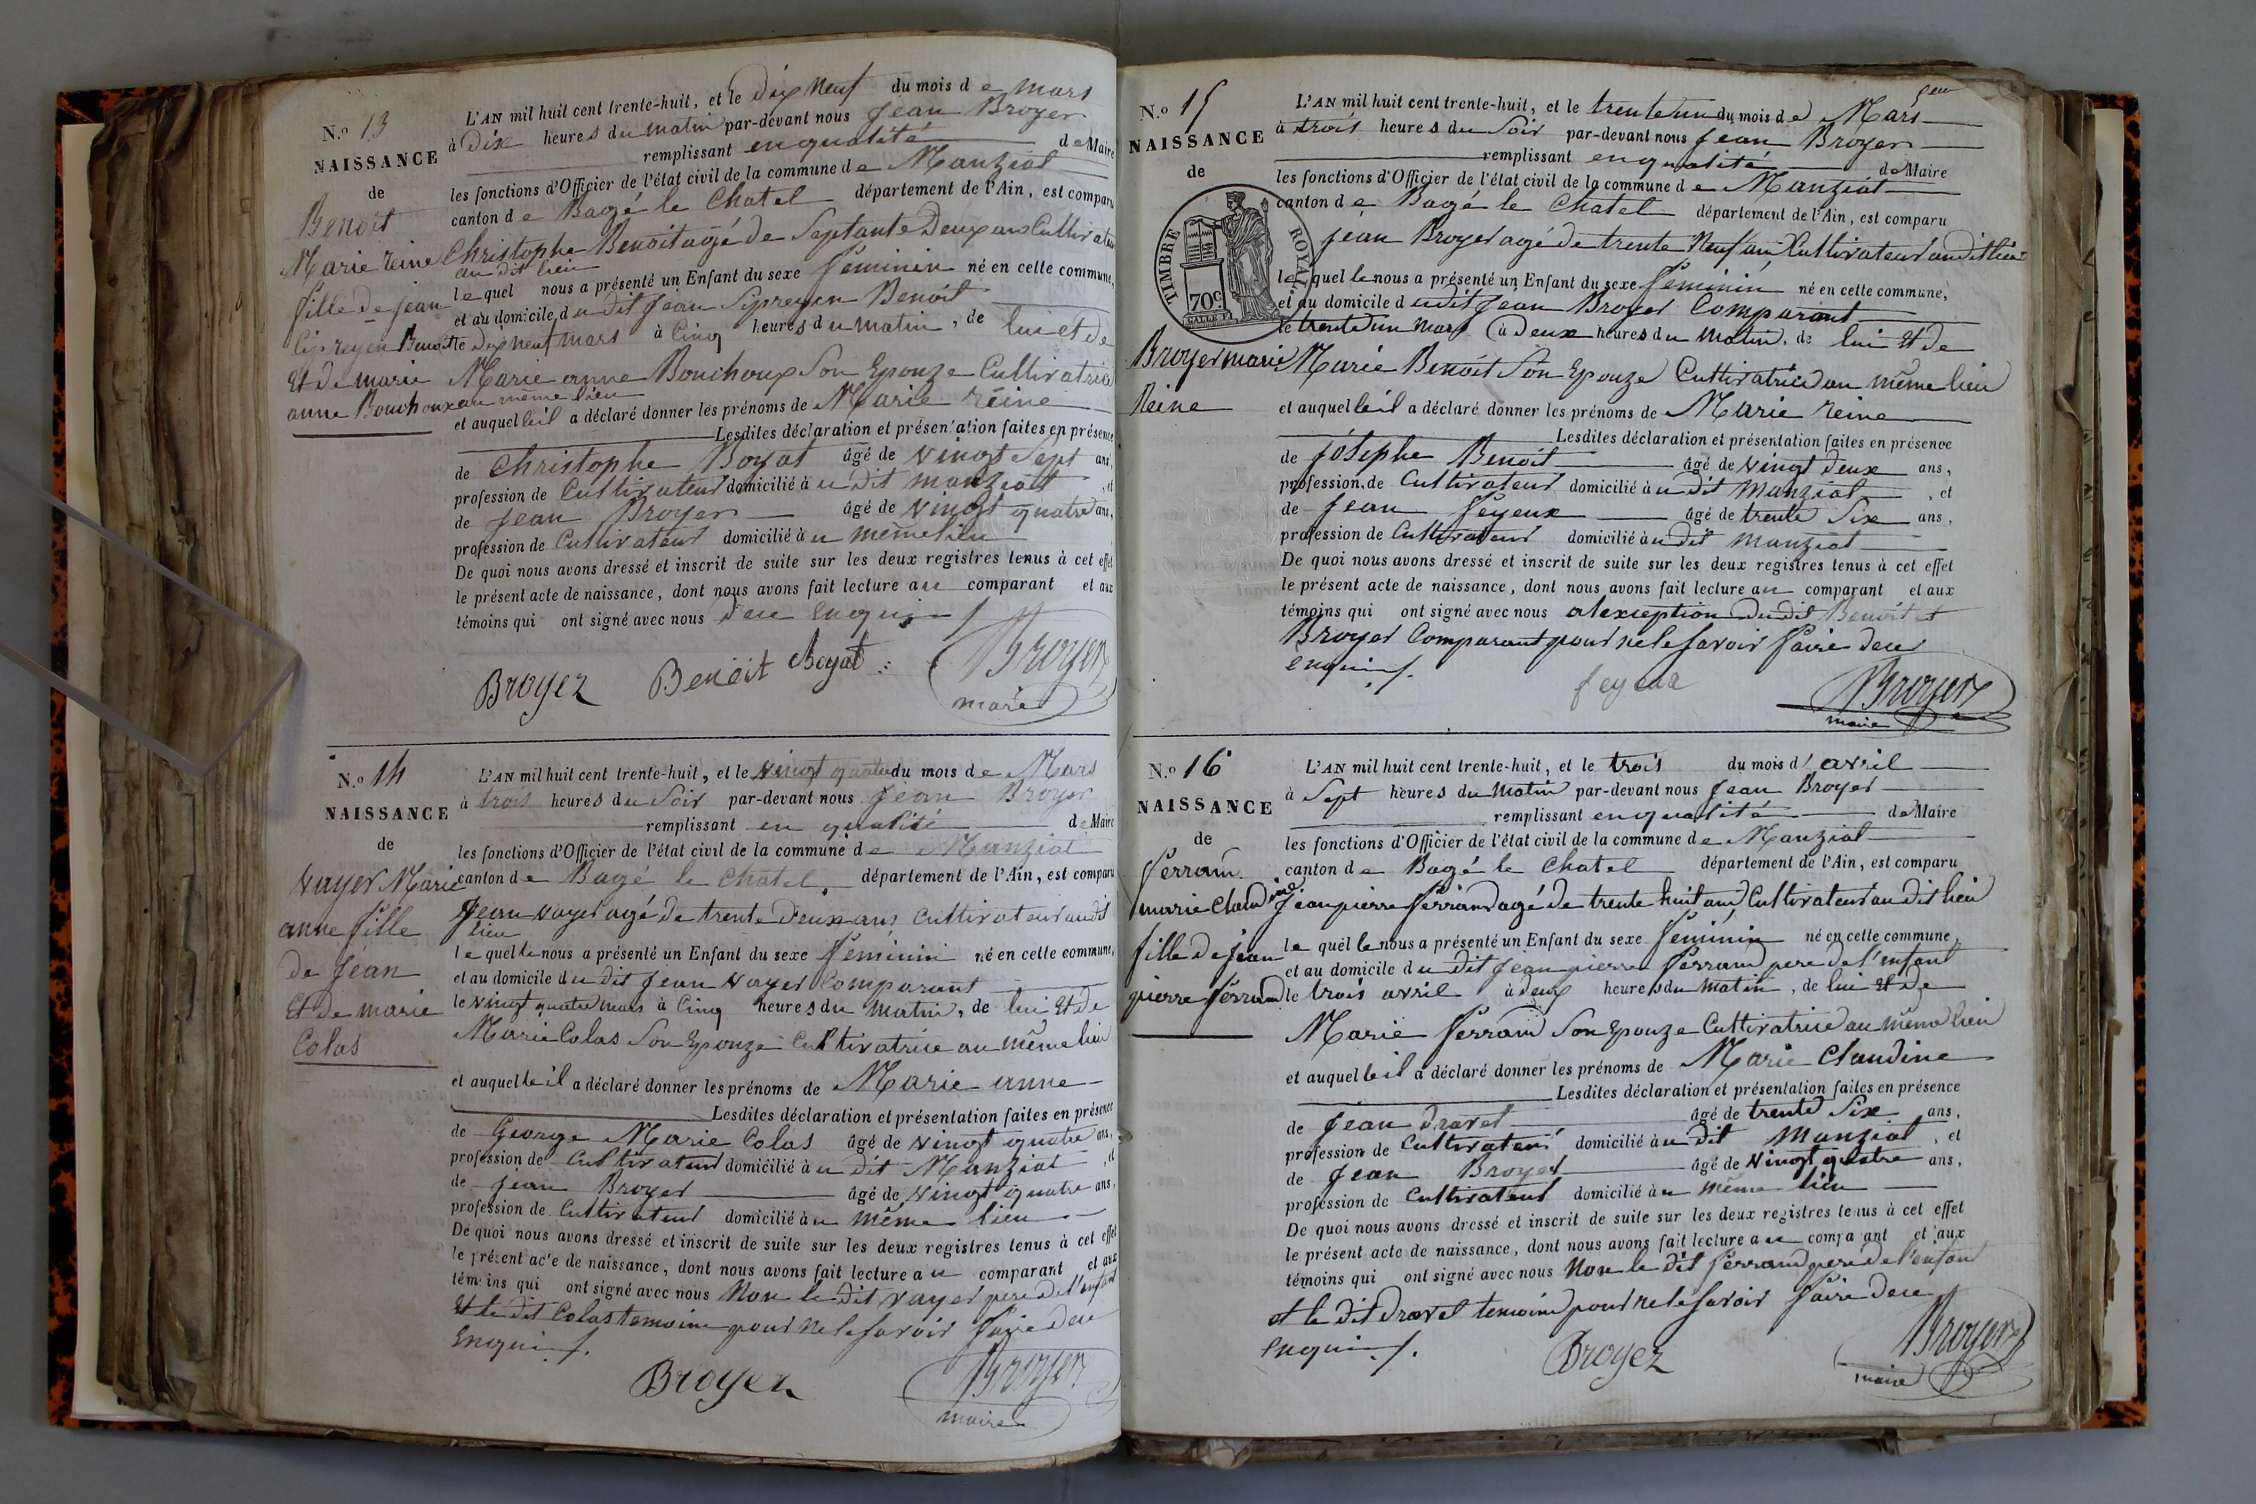 N.o 13
NAISSANCE
de
Benoit
Marie reine
fille de jean
Cipreyen Benoit
Et de marie
anne Bouchoux
L'AN mil huit cent trente-huit, et le Dix Neuf du mois de mars
à Dix heures du matin par-devant nous Jean Broyer
remplissant en qualité de Maire
les fonctions d'Officier de l'état civil de la commune de Manziat
canton de Bagé le Chatel département de l'Ain, est comparu
Christophe Benoit agé de Septante Deux ans Cultivateur
au dit lieu
lequel nous a présenté un Enfant du sexe feminin né en cette commune,
et au domicile du dit Jean Sipreyen Benoit
le dix neuf mars à Cinq heures du matin, de lui et de
Marie anne Bouchoux Son Epouze Cultivatrice
au même lieu
et auquel il a déclaré donner les prénoms de Marie reine
Lesdites déclaration et présentation faites en présence
de Christophe Boyat âgé de vingt Sept ans,
profession de Cultivateur domicilié au dit manziat, et
de Jean Broyer âgé de vingt quatre ans,
profession de Cultivateur domicilié au même lieu
De quoi nous avons dressé et inscrit de suite sur les deux registres tenus à cet effet
le présent acte de naissance, dont nous avons fait lecture au comparant et aux
témoins qui ont signé avec nous deu enqui
Broyer Benoit Boyat Broyer
maire
N.o 14
NAISSANCE
de
vayer Marie
anne fille
de jean
Et de marie
Colas
L'AN mil huit cent trente-huit, et le vingt quatre du mois de Mars
à trois heures du Soir par-devant nous Jean Broyer
remplissant en qualité de Maire
les fonctions d'Officier de l'état civil de la commune de Manziat
canton de Bagé le Chatel département de l'Ain, est comparu
Jean vayer agé de trente deux ans cultivateur au dit
lieu
lequel le nous a présenté un Enfant du sexe féminin né en cette commune,
et au domicile du dit Jean vayer Comparant
le vingt quatre mars à Cinq heures du matin, de lui Et de
Marie Colas Son Epouze Cultivatrice au même lieu
et auquel le il a déclaré donner les prénoms de Marie anne
Lesdites déclaration et présentation faites en présence
de George Marie Colas âgé de vingt quatre ans,
profession de Cultivateur domicilié au dit Manziat, et
de jean Broyer âgé de vingt quatre ans,
profession de Cultivateur domicilié au même lieu
De quoi nous avons dressé et inscrit de suite sur les deux registres tenus à cet effet
le présent acte de naissance, dont nous avons fait lecture au comparant et aux
témoins qui ont signé avec nous Non le dit vayer pere de l'enfant
Et le dit Colas temoin pour ne le savoir faire deu
Enqui
Broyer Broyer
maire
N.o 15
NAISSANCE
de
TIMBRE ROYAL
70c
Broyer marie
Reine
L'AN mil huit cent trente-huit, et le trente un du mois de Mars
à trois heures du Soir par-devant nous Jean Broyer
remplissant en qualité de Maire
les fonctions d'Officier de l'état civil de la commune de Manziat
canton de Bagé le Chatel département de l'Ain, est comparu
jean Broyer agé de trente Neuf ans Cultivateur au dit lieu
lequel le nous a présenté un Enfant du sexe féminin né en cette commune,
et au domicile du dit Jean Broyer Comparant
le trente un mars à Deux heures du matin, de lui Et de
Marie Benoit Son Epouze Cultivatrice au même lieu
et auquel le il a déclaré donner les prénoms de Marie reine
Lesdites déclaration et présentation faites en présence
de Josephe Benoit âgé de vingt deux ans,
profession de Cultivateur domicilié au dit Manziat, et
de Jean feyeux âgé de trente Six ans,
profession de Cultivateur domicilié au dit manziat
De quoi nous avons dressé et inscrit de suite sur les deux registres tenus à cet effet
le présent acte de naissance, dont nous avons fait lecture au comparant et aux
témoins qui ont signé avec nous alexception du dit Benoit et
Broyer Comparant pour ne le savoir faire deu
enqui
Broyer
maire
N.o 16
NAISSANCE
de
ferrand
marie Claudine
fille de jean
pierre ferrand
L'AN mil huit cent trente-huit, et le trois du mois d'avril
à Sept heures du Matin par-devant nous Jean Broyer
remplissant en qualité de Maire
les fonctions d'Officier de l'état civil de la commune de Manziat
canton de Bagé le Chatel département de l'Ain, est comparu
jean pierre ferrand agé de trente huit ans Cultivateur au dit lieu
lequel le nous a présenté un Enfant du sexe feminin né en cette commune,
et au domicile du dit jean pierre ferrand pere de l'enfant
le trois avril à deux heures du matin, de lui et de
Marie ferrand Son Epouze Cultivatrice au même lieu
et auquel le il a déclaré donner les prénoms de Marie Claudine
Lesdites déclaration et présentation faites en présence
de Jean dravet âgé de trente Six ans,
profession de Cultivateur domicilié au dit Manziat, et
de Jean Broyer âgé de vingt quatre ans,
profession de Cultivateur domicilié au même lieu
De quoi nous avons dressé et inscrit de suite sur les deux registres tenus à cet effet
le présent acte de naissance, dont nous avons fait lecture au comparant et aux
témoins qui ont signé avec nous Non le dit ferrand pere de l'enfan
et le dit dravet temoin pour ne le savoir faire deu
enqui
Broyer Broyer
maire